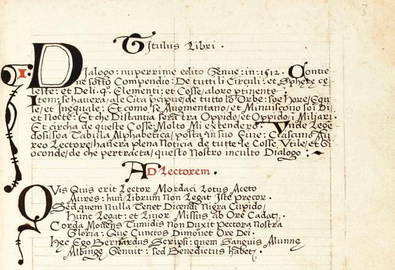 Titulus Libri.
Dialogo: nuperrime edito Genue: in: 1512. Contie
ne sotto Compendio: De tutti li Circuli: et Sphere ce
leste: et Deli. 4. Elementi: et Cosse, alore ptinente
Item: se hauera, de Cita p cipue: de tutto lo Orbe: soe Hore, Equa
le, et Inequale: Et como se Augmentano, et Minuiscono soi Di
et Notte: Et che Distantia sera tra Oppido, et Oppido, i Miliari.
Et circha de queste Cosse: Molto Mi extendero: Unde Lege
dosi, soa Tabulla Alphabetica, posta, in suo Fine: Ciascuno Au
reo Lectore, hauera plena Noticia de tutte le Cosse Utile, et Gi
oconde, de che pertracta, questo Nostro inculto Dialogo:
AD Lectorem.
QVis Quis erit Lector Mordaci Lotus Aceto
Aures: hun Librum Non Legat Iste precor.
Sed quem Nulla Tenet Dicendi Nigra Cupido,
Hunc Legat: et Liuor Missus ab Ore Cadat,
Corda Momens Tumidis Non Duxit Pectora Nostra
Gloria: Que Cunctos Dimouet Ore Dei.
Hec Ego Bernardus Scripsi: quem Sanguis Alumne
Albinge Genuit: sed Benedictus Habet.